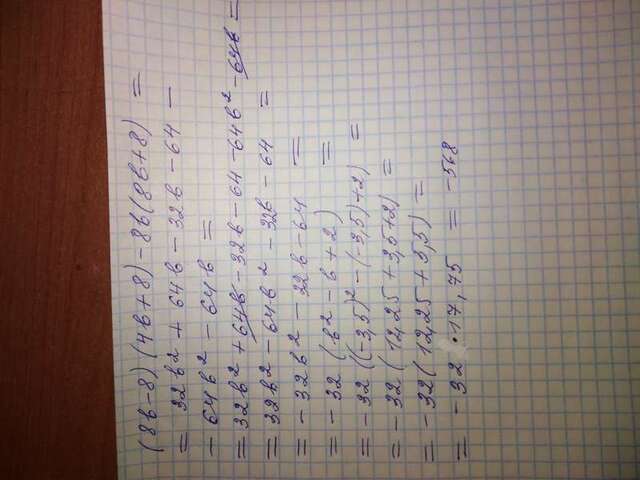 (8b-8)(4b+8)-8b(8b+8) =
= 32b² + 64b - 32b - 64 -
- 64b² - 64b =
= 32b² + 64b - 32b - 64 - 64b² - 64b =
= 32b² - 64b² - 32b - 64 =
= - 32b² - 32b - 64 =
= - 32 (b² - b + 2) =
= - 32 ((-3,5)² - (-3,5)+2) =
= - 32 (12,25 + 3,5+2) =
= - 32 (12,25 + 5,5) =
= - 32 · 17,75 = - 568